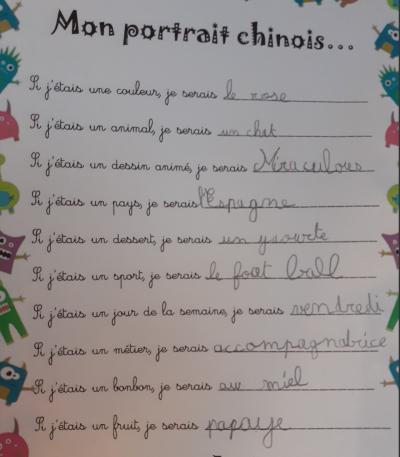 Mon portrait chinois...
Si j'étais une couleur, je serais le rose
Si j'étais un animal, je serais un chat
Si j'étais un dessin animé, je serais Miraculous
Si j'étais un pays, je serais l'Espagne
Si j'étais un dessert, je serais un yaourte
Si j'étais un sport, je serais le foot ball
Si j'étais un jour de la semaine, je serais vendredi
Si j'étais un métier, je serais accompagnabrice
Si j'étais un bonbon, je serais au miel
Si j'étais un fruit, je serais papaye